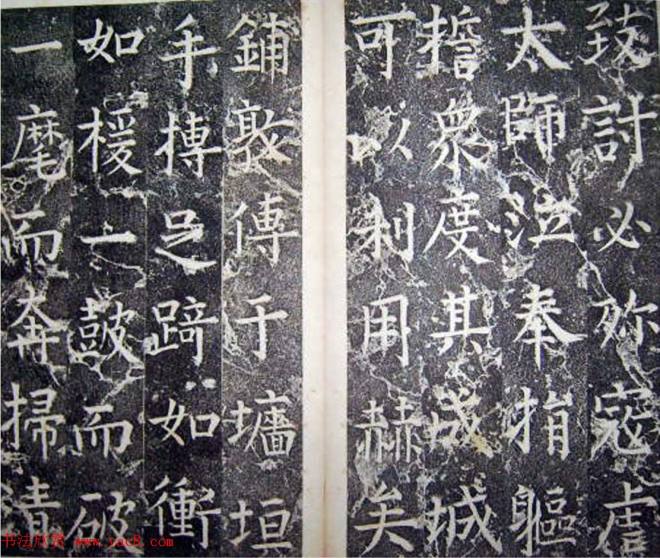 致討必殄寇虐
太師泣奉指軀
誓衆度其成城
可以利用赫矣
鋪敦傅于墻垣
手搏足踦如衝
如援一鼓而破
一麾而奔掃清
书法欣赏 www.yac8.com